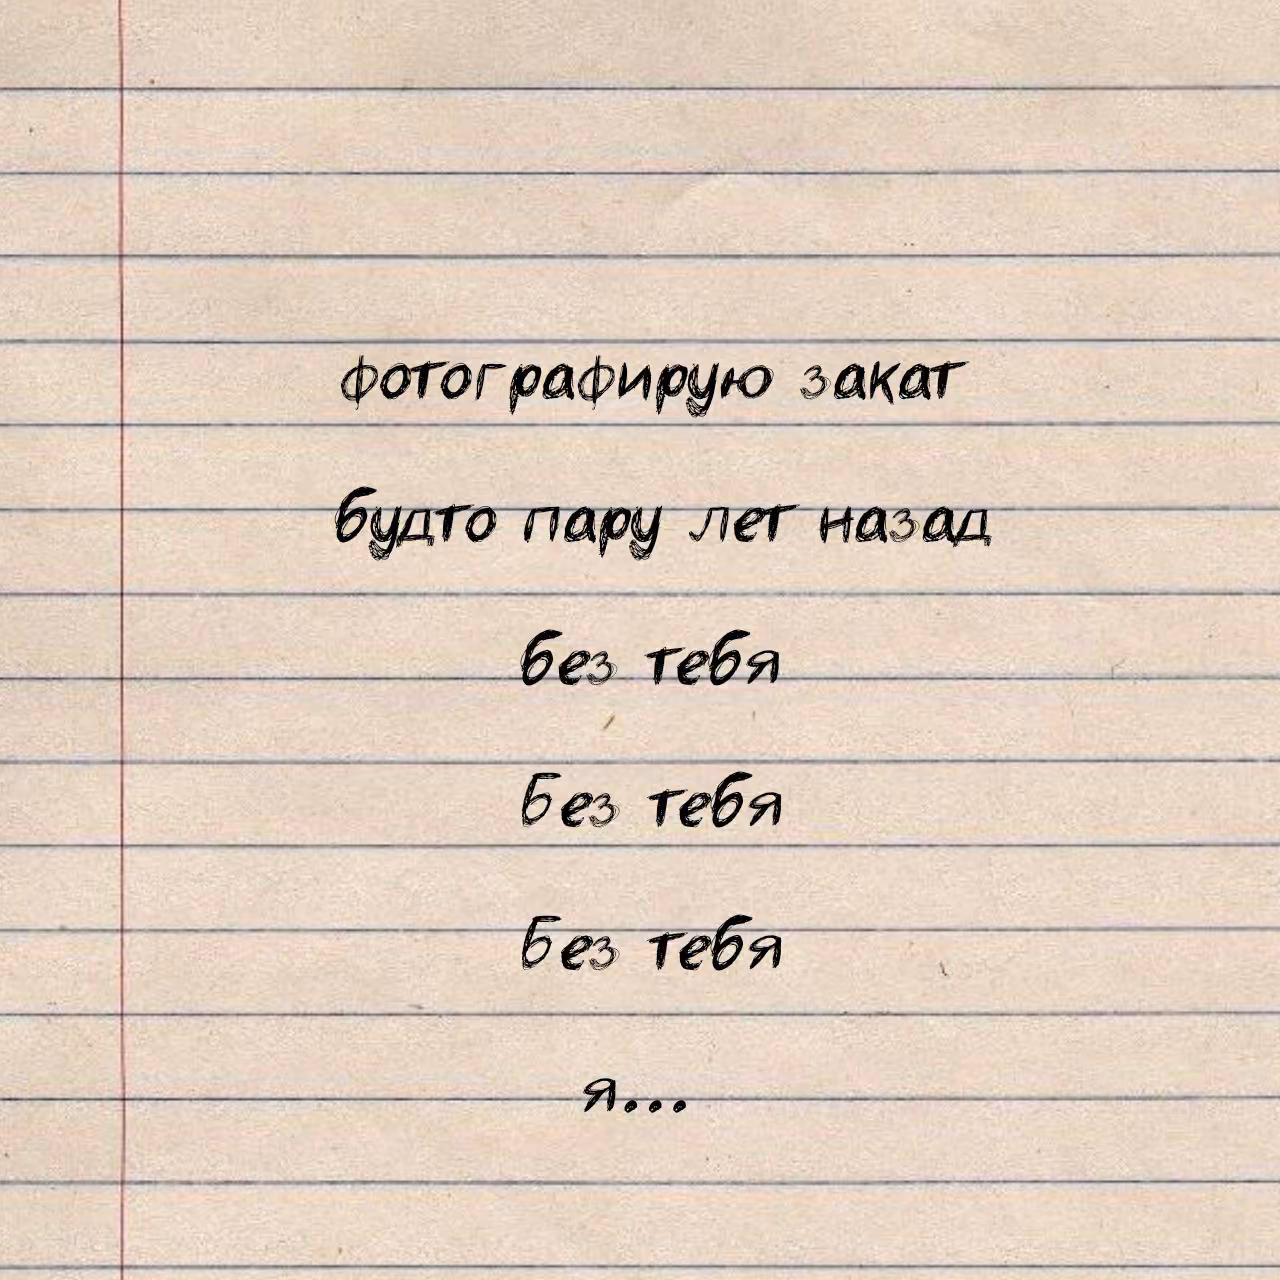 фотографирую закат
будто пару лет назад
без тебя
без тебя
без тебя
я...